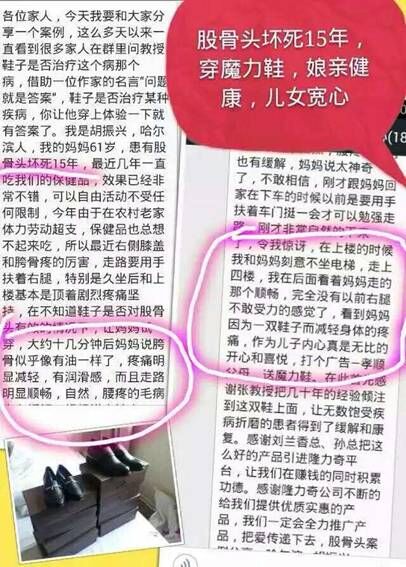 各位家人，今天我要和大家分
享一个案例，这么多天以来一
直看到很多家人在群里问教授
鞋子是否治疗这个病那个
病，借助一位作家的名言“问题
就是答案”，鞋子是否治疗某种
疾病，你让他穿上体验一下就
有答案了。我是胡振兴，哈尔
滨人，我的妈妈61岁，患有股
骨头坏死15年，最近几年一直
吃我们的保健品，效果已经非
常不错，可以自由活动不受任
何限制，今年由于在农村老家
体力劳动超支，保健品也总想
不起来吃，所以最近右侧膝盖
和胯骨疼的厉害，走路要用手
扶着右腿，特别是久坐后和上
楼基本是顶着剧烈疼痛坚
持，在不知道鞋子是否对股骨
头有效的情况下，让妈妈试
穿，大约十几分钟后妈妈说胯
骨似乎像有油一样了，疼痛明
显减轻，有润滑感，而且走路
明显顺畅，自然，腰疼的毛病
股骨头坏死15年，
穿魔力鞋，娘亲健
康，儿女宽心
(18
也有缓解，妈妈说太神奇
了，不敢相信，刚才跟妈妈回
家在下车的时候以前是要用手
扶着车门挺一会才可以勉强走
路，刚才非常自然的下来
了，令我惊讶，在上楼的时候
我和妈妈刻意不坐电梯，走上
四楼，我在后面看着妈妈走的
那个顺畅，完全没有以前右腿
不敢受力的感觉了，看到妈妈
因为一双鞋子而减轻身体的疼
痛，作为儿子内心真是无比的
开心和喜悦，打个广告—孝顺
父母，送魔力鞋。在此首先感
谢张教授把几十年的经验倾注
到这双鞋上面，让无数饱受疾
病折磨的患者得到了缓解和康
复。感谢刘兰香总、孙总把这
么好的产品引进隆力奇平
台，让我们在赚钱的同时积累
功德。感谢隆力奇公司不断的
给我们提供优质实惠的产
品，我们一定会全力推广产
品，把爱传递下去，股骨头案